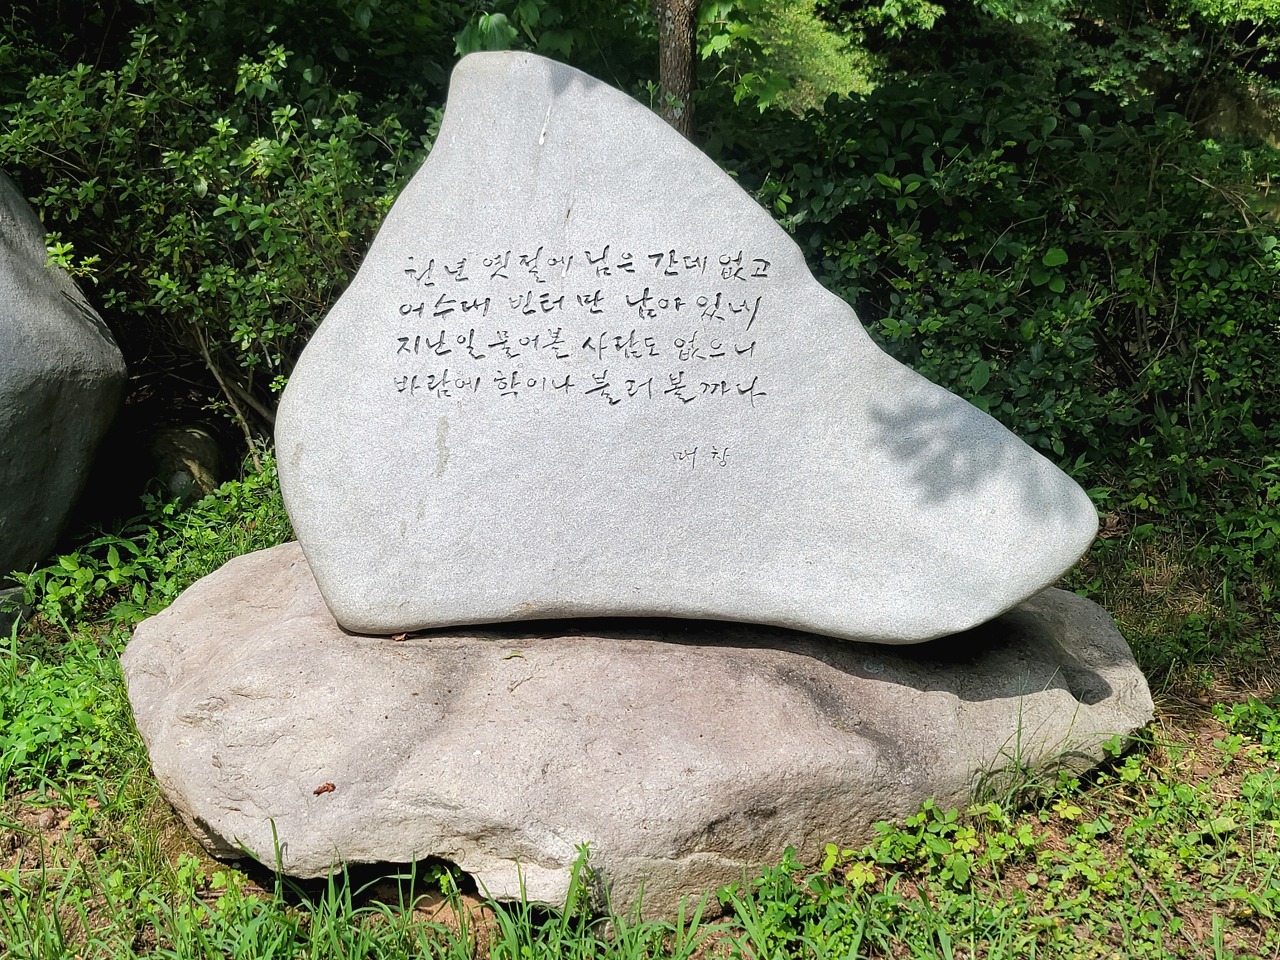 천년 옛절에 님은 간데 없고
어수대 빈터만 남아 있네
지난일 물어볼 사람도 없으니
바람에 학이나 불러 볼까나
매창